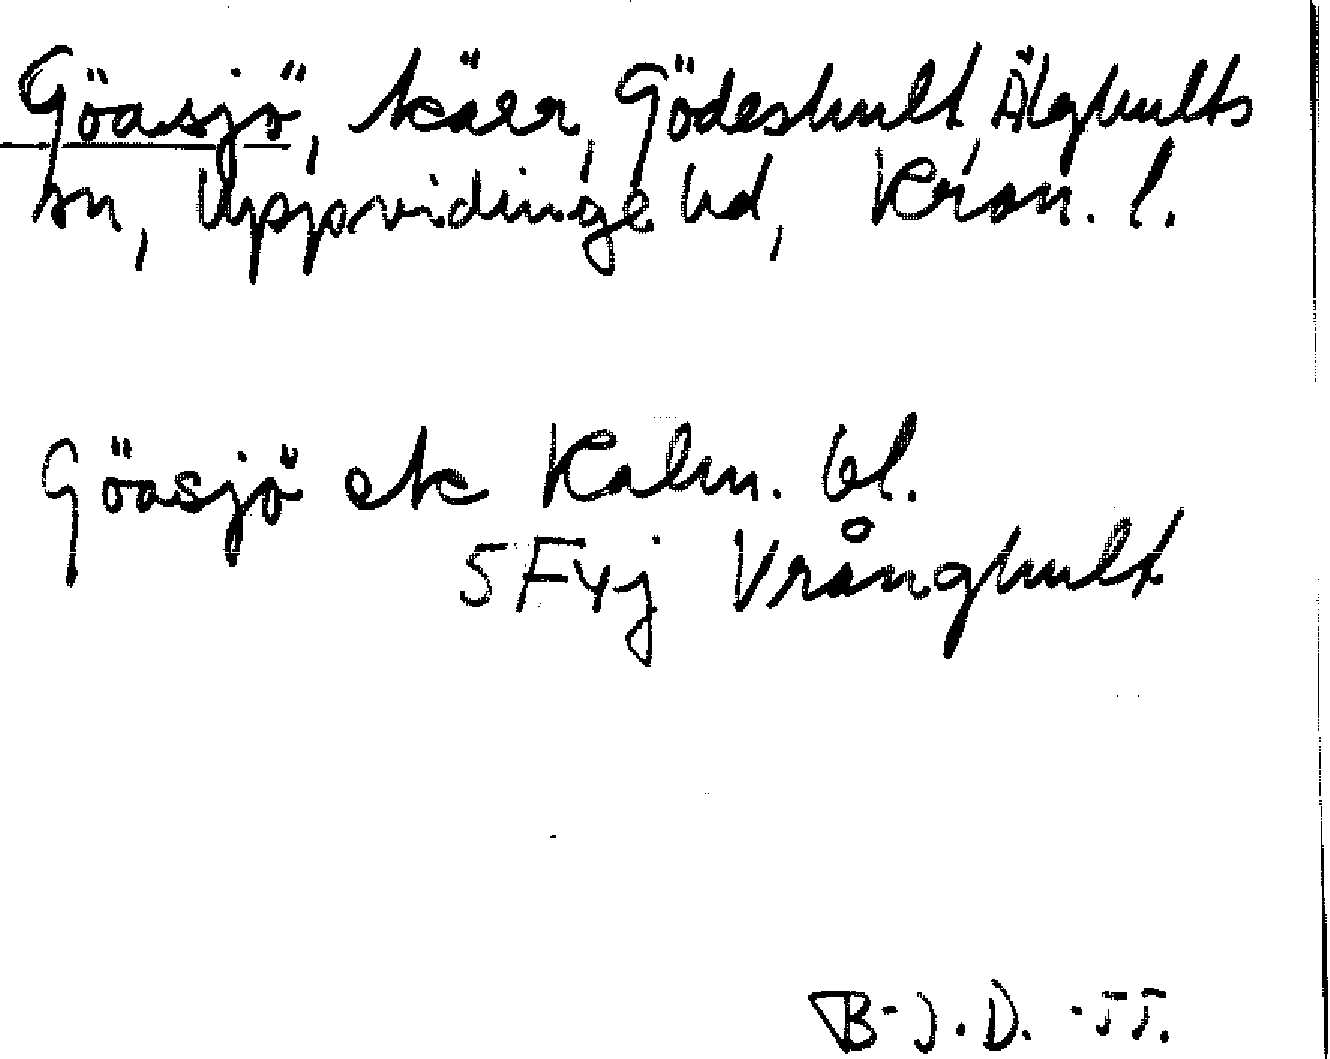 Göasjö, kärr, Gödeshult, Älghults
sn, Uppvidinge hd, Kron. l.
Göasjö ek Kalm. bl.
5F4j Vrånghult
B-J.D. -55.